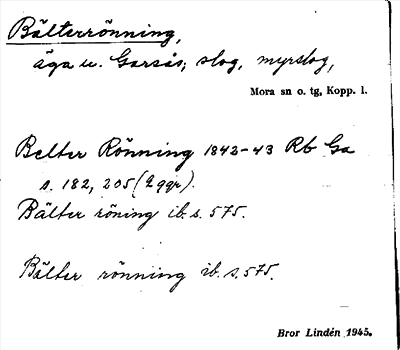 Bälterrönning,
äga u. Garsås; slog, myrslog,
Mora sn o. tg, Kopp. l.
Belter Rönning 1842-43 Rb Ga
s. 182, 205 (2 ggr).
Bälter röning ib. s. 575.
Bälter rönning ib. s. 575.
Bror Lindén 1945.